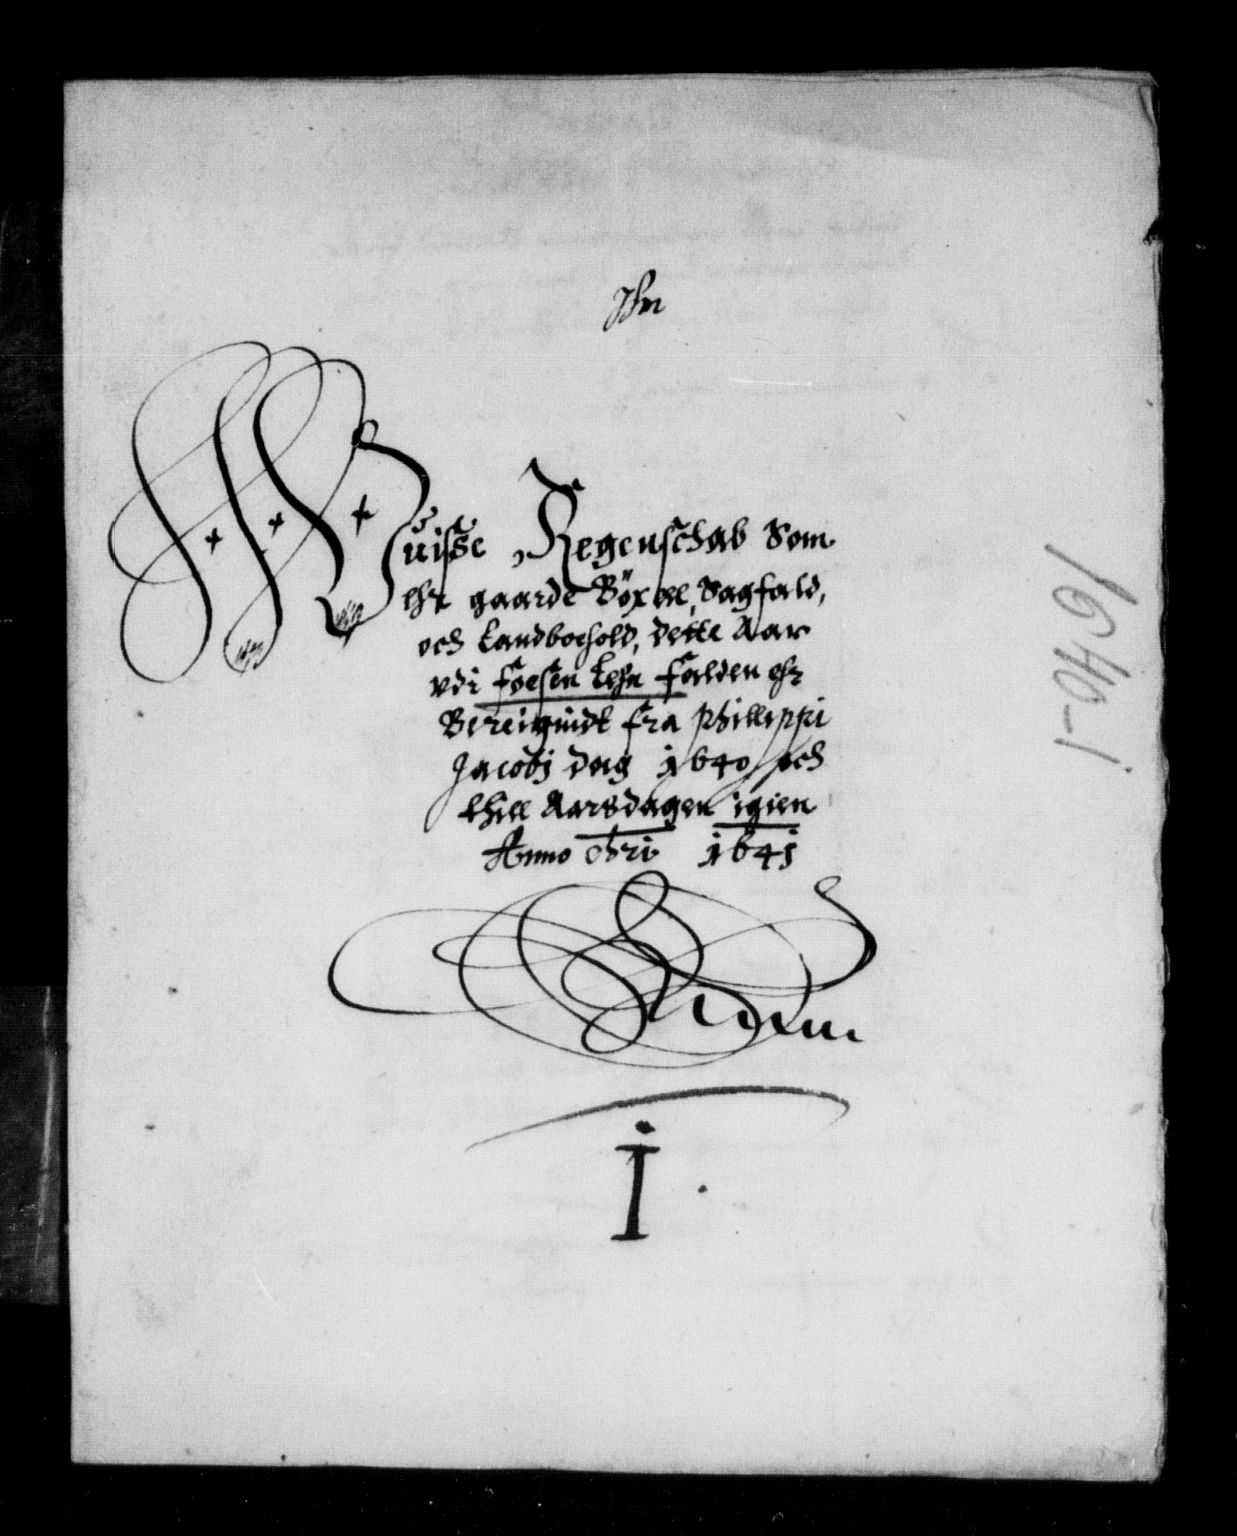 Jhn
Wuisse Regenschab Som
ehr gaarde Böxel, Sagfald,
och Landboehold, dette Aar
vdi foesen Lehn falden ehr
Bereignidt fra Phillippi
Jacobj dag 1640 och
thill Aarsdagen igien
Anno Chri 1641
I
1640-1